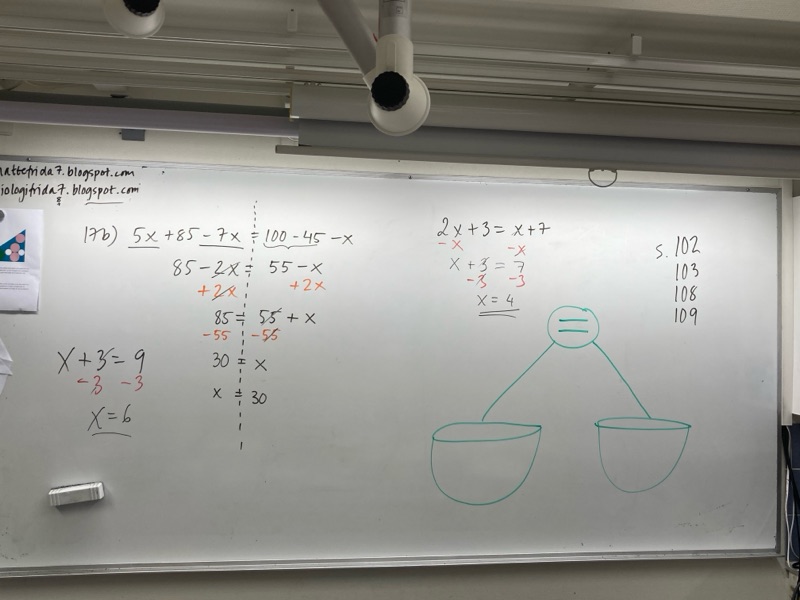 mattefrida7.blogspot.com
biologifrida7.blogspot.com
17b) 5x + 85 - 7x = 100 - 45 - x
85 - 2x = 55 - x
+2x +2x
85 = 55 + x
-55 -55
30 = x
x = 30
x + 3 = 9
-3 -3
x = 6
2x + 3 = x + 7
-x -x
x + 3 = 7
-3 -3
x = 4
=
s. 102
103
108
109